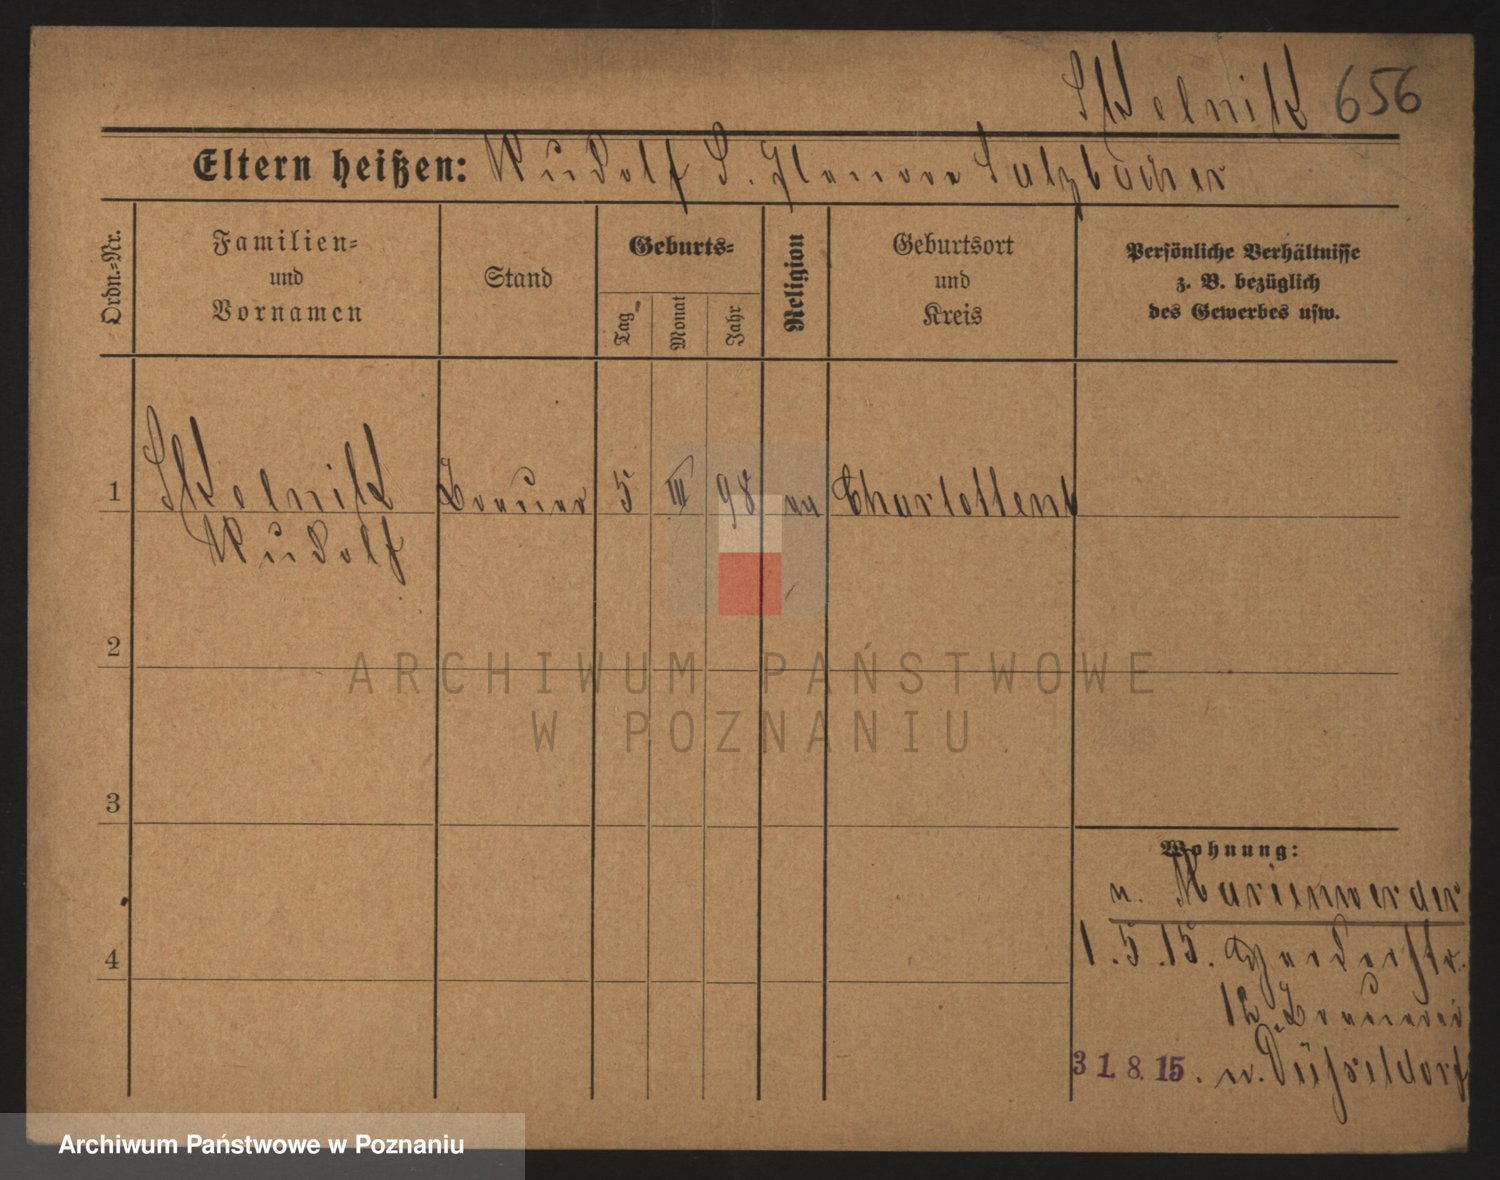 Skolnik 656
Eltern heißen: Rudolf S. Elenore Salzbacher
Ordn.-Nr.
Familien-
und
Vornamen
Stand
Geburts-
Tag
Monat
Jahr
Religion
Geburtsort
und
Kreis
Persönliche Verhältnisse
z. B. bezüglich
des Gewerbes usw.
1 Brauer 5 III 98 Charlottenb
Rudolf
2
ARCHIWUM PAŃSTWOWE
W POZNANIU
3
Wohnung:
n. Marienwerder
1.5.15.
12 Brauerei
31.8.15. n. Düsseldorf
4
Archiwum Państwowe w Poznaniu